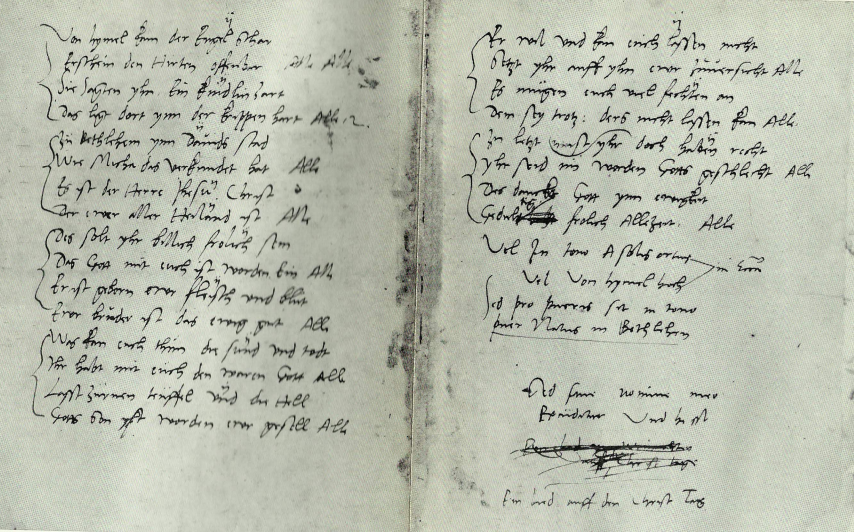 Von hymel kam der Engel schar
Erschein den hirten offenbar Alle Alle
Die sagten yhn. Ein kindlin zart
Das ligt dort ynn der krippen hart Alle. 2.
Zu Bethlehem ynn Dauids stad
Wie Micha das verkundet hat Alle
Es ist der Herre Jhesus Christ
Der ewer aller Heiland ist Alle
Des solt yhr billich frolich sein
Das Gott mit euch ist worden Ein Alle
Er ist geborn ewr fleisch und blut
Ewr bruder ist das ewig gut Alle
Was kan euch thun die sund und todt
Ihr habt mit euch den waren Gott Alle
Lasst zurnen teuffel und die Hell
Gotts son yst worden ewr gesell Alle
Er wil und kan euch lassen nicht
Setzt yhr auff yhn ewr zuuersicht Alle
Es mugen euch viel fechten an
Dem sey trotz: ders nicht lassen kan Alle.
Zu letzt must yhr doch haben recht
Yhr seid nu worden Gotts geschlecht Alle
Des dancket Gott ynn ewigkeit
Gedultig frolich Allezeit. Alle
Vel In tono A solis ortus
Vel Von hymel hoch
sed pro pueris sit in tono
puer Natus in Bethlehem
Sed sine nomine meo
Ein lied auff den Christ Tag